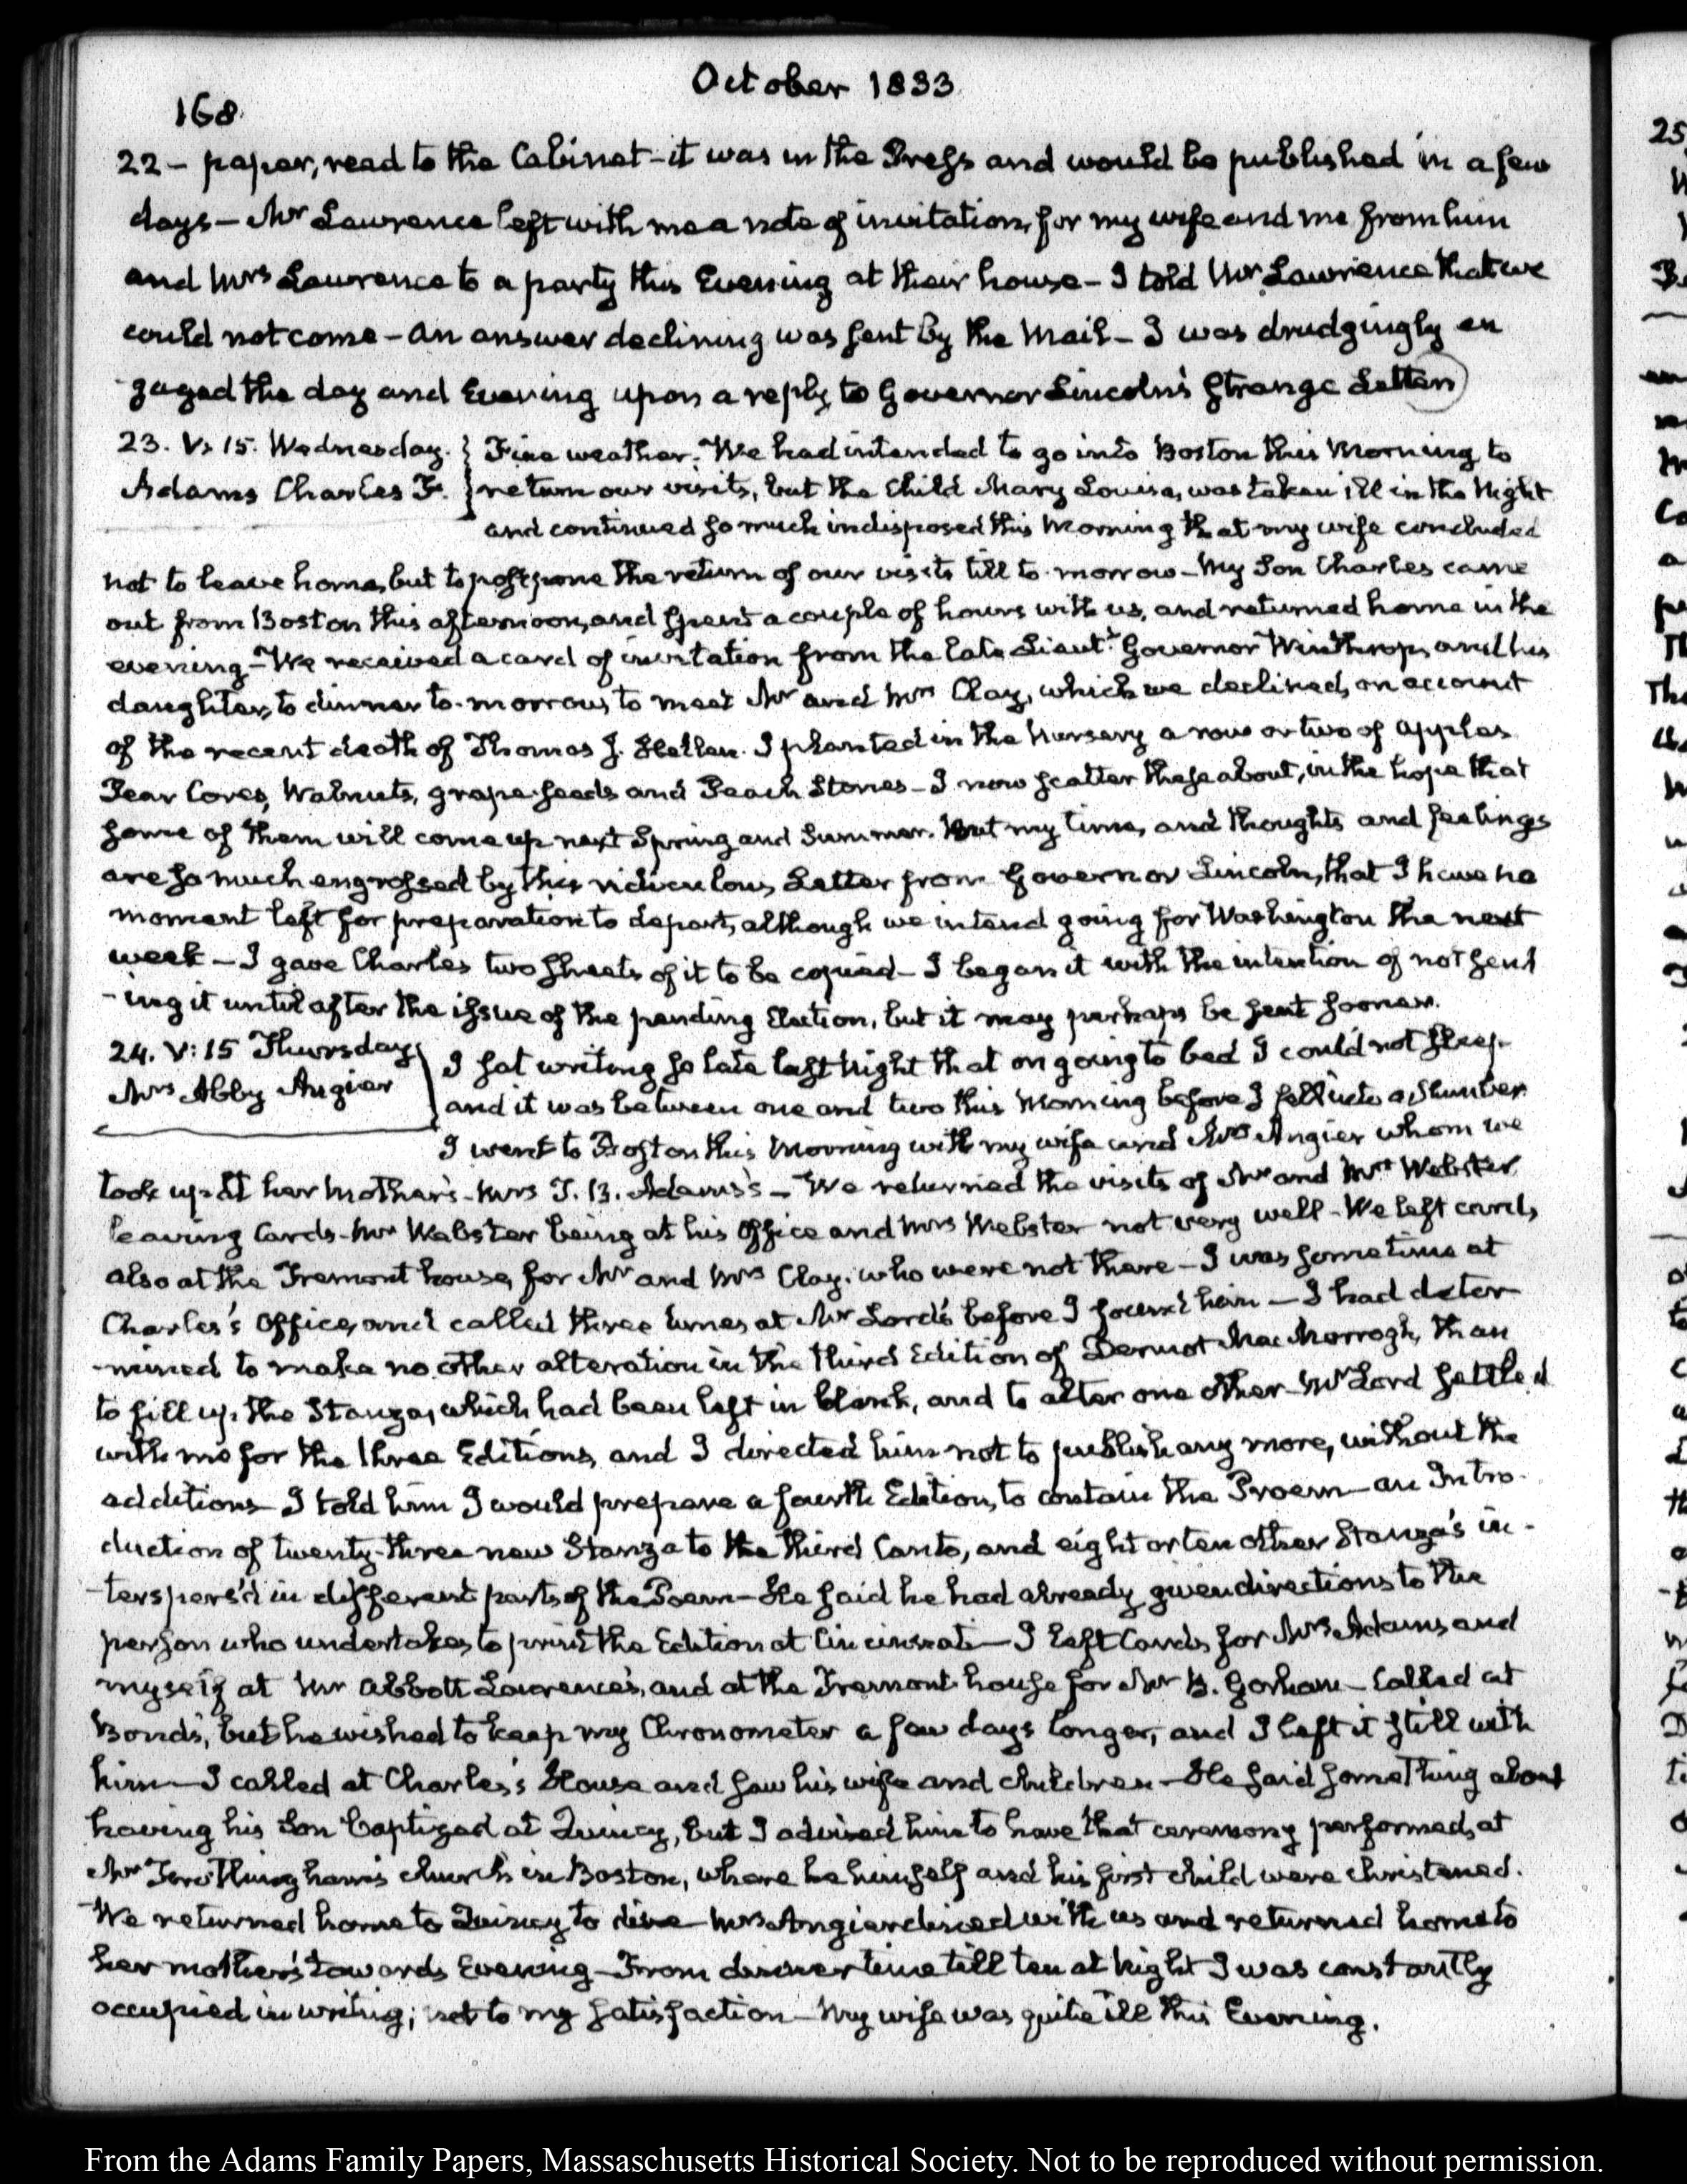 October 1833
168
22 – paper, read to the Cabinet – it was in the Press and would be published in a few
days – Mr Lawrence left with me a note of invitation, for my wife and me from him
and Mrs Lawrence to a party this Evening at their house – I told Mr Lawrence that we
could not come – An answer declining was sent by the Mail – I was drudgingly en
gaged the day and Evening upon a reply to Governor Lincoln's strange Letter
23. V: 15. Wednesday. Fine weather. We had intended to go into Boston this Morning to
Adams Charles F. return our visits, but the Child Mary Louisa, was taken ill in the Night
and continued so much indisposed this Morning that my wife concluded
not to leave home, but to postpone the return of our visits till to-morrow – My Son Charles came
out from Boston this afternoon, and spent a couple of hours with us, and returned home in the
evening – We received a card of invitation from the late Lieut. Governor Winthrop, and his
daughter, to dinner to-morrow, to meet Mr and Mrs Clay, which we declined, on account
of the recent death of Thomas J. Hellen. I planted in the Nursery a row or two of apples
Pear Cores, Walnuts, grape-seeds and Peach Stones – I now scatter these about, in the hope that
some of them will come up next Spring and Summer. But my time, and thoughts and feelings
are so much engrossed by this ridiculous Letter from Governor Lincoln, that I have no
moment left for preparation to depart, although we intend going for Washington the next
week – I gave Charles two sheets of it to be copied – I began it with the intention of not send
-ing it until after the issue of the pending Election, but it may perhaps be sent sooner.
24. V: 15 Thursday I sat writing so late last Night that on going to bed I could not sleep
Mrs Abby Angier and it was between one and two this Morning before I fell into a slumber
I went to Boston this Morning with my wife and Mrs Angier whom we
took up at her Mother's – Mrs T. B. Adams's – We returned the visits of Mr and Mrs Webster
leaving Cards – Mr Webster being at his Office and Mrs Webster not very well – We left cards,
also at the Tremont house, for Mr and Mrs Clay, who were not there – I was sometime at
Charles's Office, and called three times at Mr Lord's before I found him – I had deter
-mined to make no other alteration in the third Edition of Dermot Mac Morrogh, than
to fill up the Stanza, which had been left in blank, and to alter one other – Mr Lord settled
with me for the three Editions, and I directed him not to publish any more, without the
additions – I told him I would prepare a fourth Edition, to contain the Proem – an Intro-
duction of twenty-three new Stanza to the third Canto, and eight or ten other Stanza's in-
-terspers'd in different parts of the Poem – He said he had already given directions to the
person who undertakes to print the Edition at Cincinnati – I left Cards for Mrs Adams and
myself at Mr Abbott Lawrence's, and at the Tremont house for Mr B. Gorham – Called at
Bond's, but he wished to keep my Chronometer a few days longer, and I left it still with
him – I called at Charles's House and saw his wife and children – He said something about
having his Son baptized at Quincy, but I advised him to have that ceremony performed, at
Mr Frothingham's church in Boston, where he himself and his first child were christened.
We returned home to Quincy to dine – Mrs Angier dined with us and returned home to
her mother's towards Evening – From dinner time till ten at Night I was constantly
occupied in writing; not to my satisfaction – My wife was quite ill this Evening.
25
From the Adams Family Papers, Massaschusetts Historical Society. Not to be reproduced without permission.